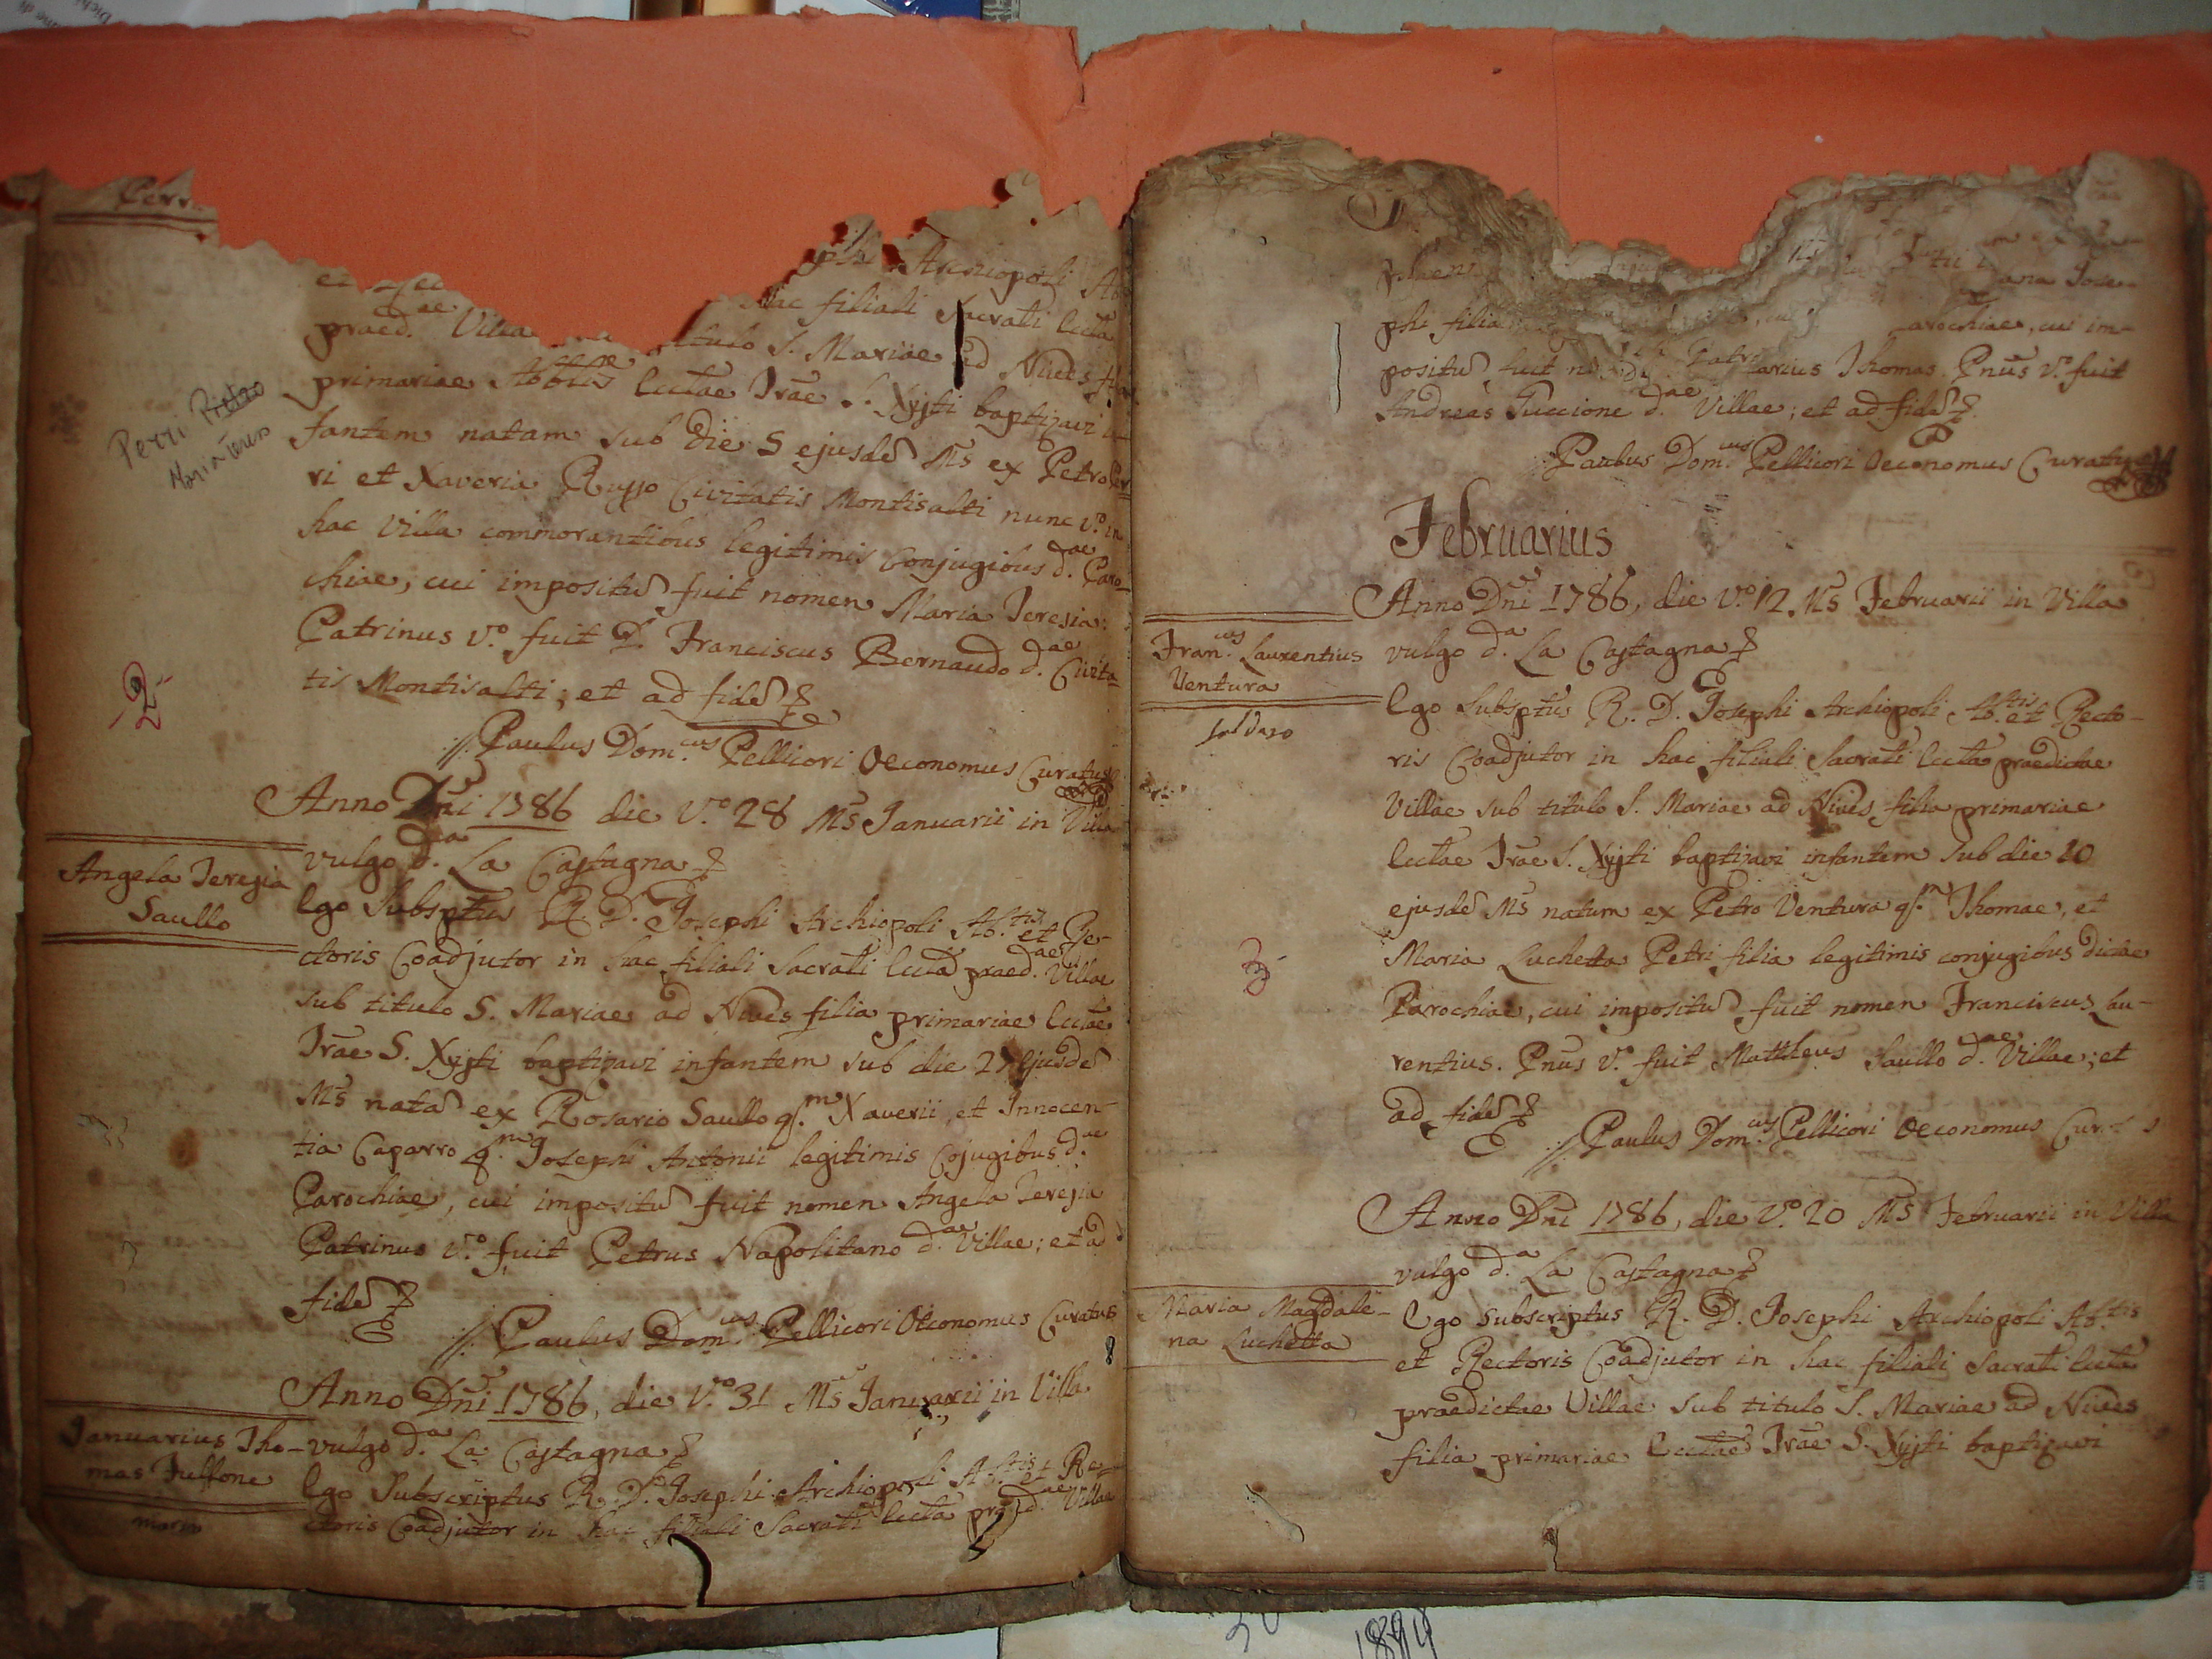 Perri
Perri Pietro
Maria Teresa
phi Archiopoli Ab
praed.ae Villa titulo hac filiali Sacrati Eccta
S. Mariae ad Nives filia
primariae Abbtlis Ecctae Trae S. Xyjti baptizavi in-
fantem natam sub die 5 ejusde Ms ex Petro Per-
ri et Xaveria Russo Civitatis Montisalti nunc v.o in
hac Villa commorantibus legitimis conjugibus d.ae Paro-
chiae, cui impositu fuit nomen Maria Teresia:
Patrinus v.o fuit D. Franciscus Bernaudo d.ae Civita-
tis Montisalti; et ad fide
2.
Paulus Dom.cus Pellicori Oeconomus Curatus
Anno Dni 1786 die V.o 28 Ms Januarii in Villa
vulgo d.a La Castagna
Angela Teresia
Saullo
Ego Subsptus R. D. Josephi Archiopoli Ab.tis et Re-
ctoris Coadjutor in hac filiali Sacrati Eccta praed.ae Villae
sub titulo S. Mariae ad Nives filia primariae Ecctae
Trae S. Xyjti baptizavi infantem sub die 27 ejusde
Ms nata ex Rosario Saullo q.m Xaverii, et Innocen-
tia Caparro q.m Josephi Antonii legitimis Cojugibus d.ae
Parochiae, cui impositu fuit nomen Angela Teresia
Patrinus v.o fuit Petrus Napolitano d.ae Villae; et ad
fide
Paulus Dom.cus Pellicori Oeconomus Curatus
Anno Dni 1786, die V.o 31 Ms Januarii in Villa
vulgo d.a La Castagna
Januarius Tho-
mas Tulfone
Ego Subscriptus R. D. Josephi Archiopoli Ab.tis et Re-
ctoris Coadjutor in hac filiali Sacrati Eccta praed.ae Villae
phi filia arochiae, cui im-
positu fuit Januarius Thomas. Pnus v.o fuit
Andreas Guccione d.ae Villae; et ad fide
Paulus Dom.cus Pellicori Oeconomus Curatus
Februarius
Anno Dni 1786, die V.o 12 Ms Februarii in Villa
vulgo d.a La Castagna
Fran.cus Laurentius
Ventura
Ego Subsptus R. D. Josephi Archiopoli Ab.tis et Recto-
ris Coadjutor in hac filiali Sacrati Eccta praedictae
Villae sub titulo S. Mariae ad Nives filia primariae
Ecctae Trae S. Xyjti baptizavi infantem sub die 10
ejusde Ms natum ex Petro Ventura q.m Thomae, et
3.
Maria Luchetta Petri filia legitimis conjugibus dictae
Parochiae, cui impositu fuit nomen Franciscus Lau-
rentius. Pnus v.o fuit Mattheus Saullo d.ae Villae; et
ad fide
Paulus Dom.cus Pellicori Oeconomus
Anno Dni 1786, die V.o 20 Ms Februarii in Villa
vulgo d.a La Castagna
Maria Magdale-
na Luchetta
Ego Subscriptus R. D. Josephi Archiopoli Ab.tis
et Rectoris Coadjutor in hac filiali Sacrati Eccta
praedictae Villae sub titulo S. Mariae ad Nives
filia primariae Ecctae Trae S. Xyjti baptizavi